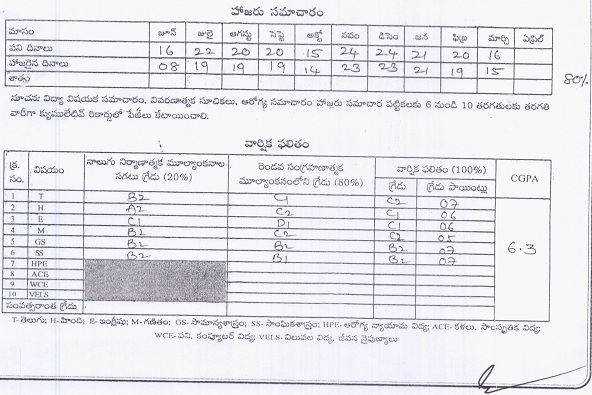 హాజరు సమాచారం
మాసం జూన్ జులై ఆగస్టు సెప్టె అక్టో నవం డిసెం జన ఫిబ్ర మార్చి ఏప్రిల్
పని దినాలు 16 22 20 20 15 24 24 21 20 16
హాజరైన దినాలు 08 19 19 19 14 23 23 21 19 15
శాతం
80%
సూచన: విద్యా విషయక సమాచారం, వివరణాత్మక సూచికలు, ఆరోగ్య సమాచారం హాజరు సమాచార పట్టికలకు 6 నుండి 10 తరగతులకు తరగతి
వారీగా క్యుములేటివ్ రికార్డులో పేజీలు కేటాయించాలి.
వార్షిక ఫలితం
క్ర. సం. విషయం నాలుగు నిర్మాణాత్మక మూల్యాంకనాల సగటు గ్రేడు (20%) రెండవ సంగ్రహణాత్మక మూల్యాంకనంలోని గ్రేడు (80%) వార్షిక ఫలితం (100%) CGPA
గ్రేడు గ్రేడు పాయింట్లు
1 T B2 C1 C2 07
2 H A2 C2 C1 06
3 E C1 D1 C1 06
4 M B2 C2 C2 05
5 GS B2 B2 B2 07 6.3
6 SS B2 B1 B2 07
7 HPE
8 ACE
9 WCE
10 VELS
సంవత్సరాంత గ్రేడు
T- తెలుగు; H- హింది; E- ఇంగ్లీషు; M- గణితం; GS- సామాన్యశాస్త్రం; SS- సాంఘికశాస్త్రం; HPE- ఆరోగ్య వ్యాయామ విద్య; ACE- కళలు, సాంస్కృతిక విద్య;
WCE- పని, కంప్యూటర్ విద్య; VELS- విలువల విద్య, జీవన నైపుణ్యాలు